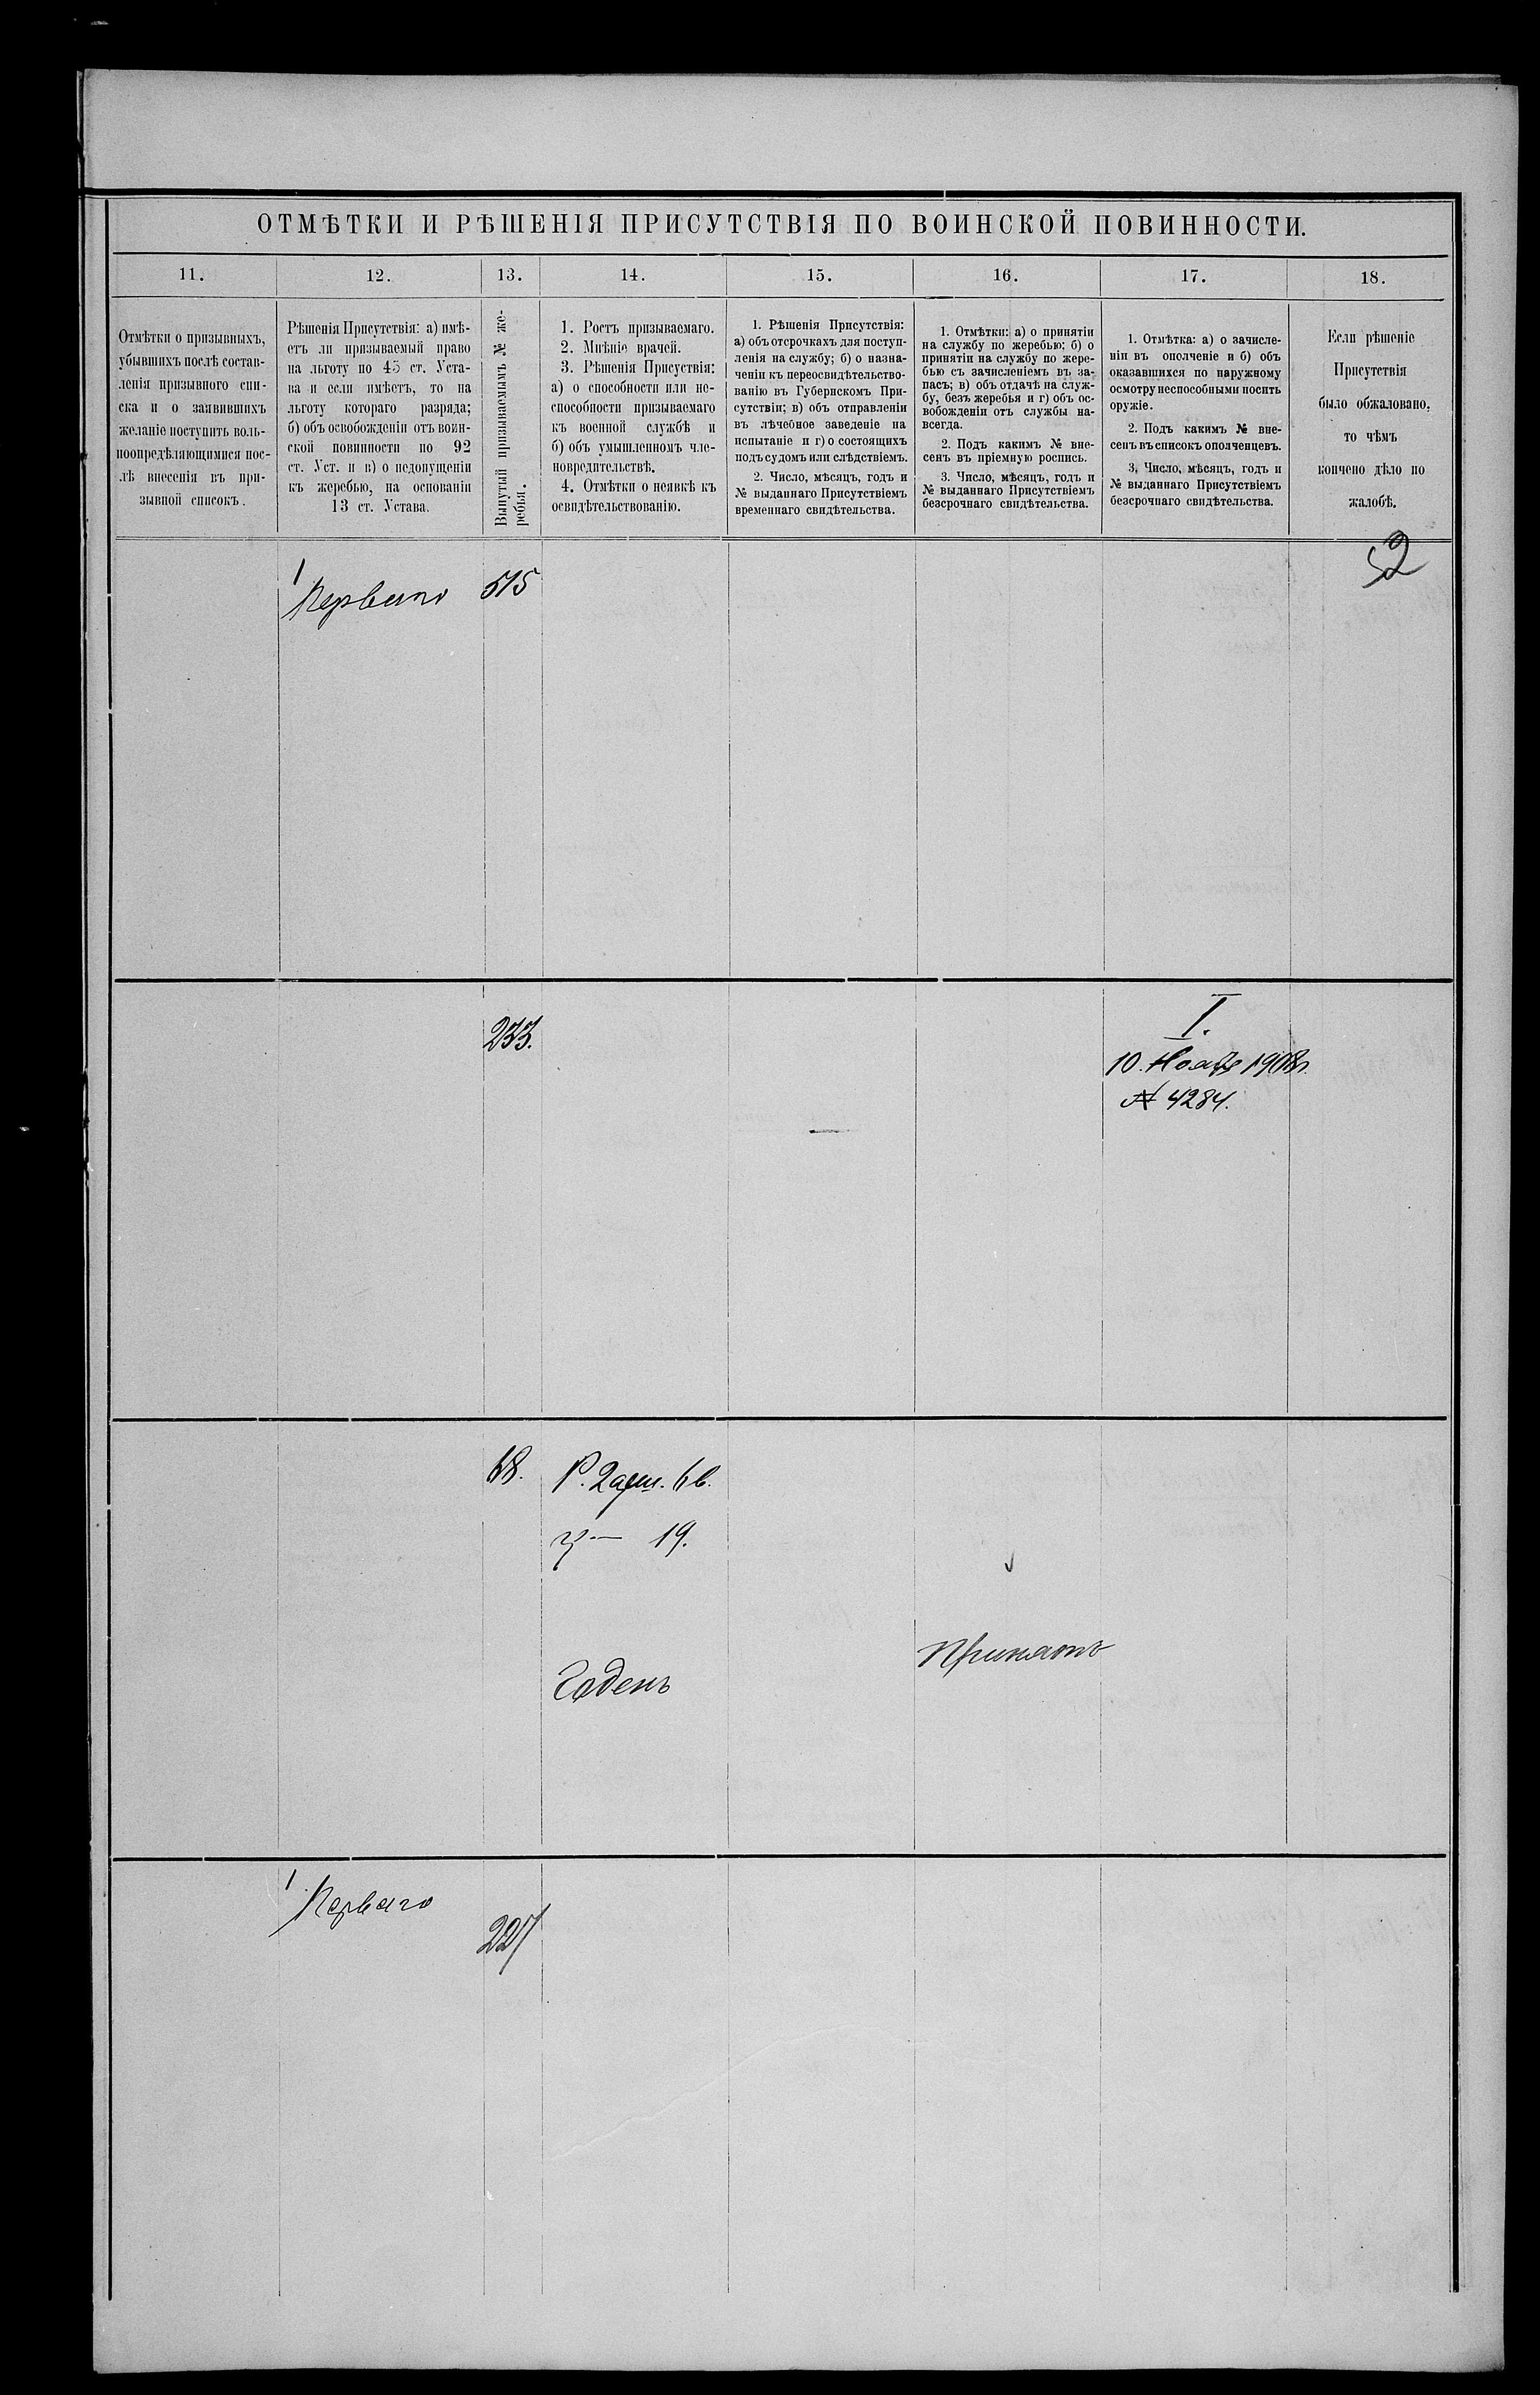 ОТМѢТКИ И РѢШЕНІЯ ПРИСУТСТВІЯ ПО ВОИНСКОЙ ПОВИННОСТИ.
11.
12.
13.
14.
15.
16.
17.
18.
Отмѣтки о призывныхъ,
убывшихъ послѣ состав-
ленія призывного спи-
ска и о заявившихъ
желаніе поступить воль-
ноопредѣляющимися пос-
лѣ внесенія въ при-
зывной списокъ.
Рѣшенія Присутствія: а) имѣ-
етъ ли призываемый право
на льготу по 45 ст. Уста-
ва и если имѣетъ, то на
льготу котораго разряда;
б) объ освобожденіи отъ воин-
ской повинности по 92
ст. Уст. и в) о недопущеніи
къ жеребью, на основаніи
13 ст. Устава.
Вынутый призываемымъ № же-
ребья.
1. Ростъ призываемаго.
2. Мнѣніе врачей.
3. Рѣшенія Присуствія:
а) о способности или не-
способности призываемаго
къ военной службѣ и
б) объ умышленномъ чле-
новредительствѣ.
4. Отмѣтки о неявкѣ къ
освидѣтельствованію.
1. Рѣшенія Присутствія:
а) объ отсрочкахъ для поступ-
ленія на службу; б) о назна-
ченіи къ переосвидѣтельство-
ванію въ Губернскомъ При-
сутствіи; в) объ отправленіи
въ лѣчебное заведеніе на
испытаніе и г) о состоящихъ
подъ судомъ или слѣдствіемъ.
2. Число, мѣсяцъ, годъ и
№ выданнаго Присутствіемъ
временнаго свидѣтельства.
1. Отмѣтки: а) о принятіи
на службу по жеребью; б) о
принятіи на службу по жере-
бью съ зачисленіемъ въ за-
пасъ; в) объ отдачѣ на служ-
бу, безъ жеребья и г) объ ос-
вобожденіи отъ службы на-
всегда.
2. Подъ какимъ № вне-
сенъ въ пріемную роспись.
3. Число, мѣсяцъ, годъ и
№ выданнаго Присутствіемъ
безсрочнаго свидѣтельства.
1. Отмѣтка: а) о зачисле-
ніи въ ополченіе и б) объ
оказавшихся по наружному
осмотру неспособными носить
оружіе.
2. Подъ какимъ № вне-
сенъ въ списокъ ополченцевъ.
3. Число, мѣсяцъ, годъ и
№ выданнаго Присутствіемъ
безсрочнаго свидѣтельства.
Если рѣшеніе
Присутствія
было обжаловано,
то чѣмъ
кончено дѣло по
жалобѣ.
52
1
Перваго 515
233.
I.
10. Ноября 1908г.
№ 4284.
68. Р. 2 арш. 6 в.
19.
Годенъ
Принятъ
1
Перваго
227